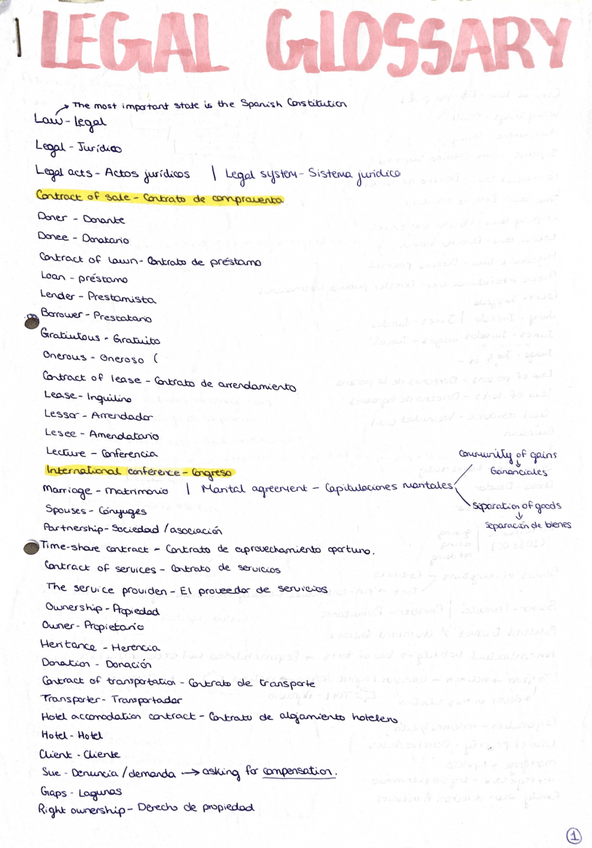 LEGAL GLOSSARY
→ The most important state is the Spanish Constitution
Law - Legal
Legal - Jurídico
Legal acts - Actos jurídicos | Legal system - Sistema jurídico
Contract of sale - Contrato de compraventa
Doner - Donante
Donee - Donatario
Contract of lawn - Contrato de préstamo
Loan - préstamo
Lender - Prestamista
Borrower - Prestatario
Gratiutous - Gratuito
Onerous - Oneroso (
Contract of lease - Contrato de arrendamiento
Lease - Inquilino
Lessor - Arrendador
Lesee - Arrendatario
Lecture - Conferencia
International conference - Congreso
Marriage - Matrimonio | Marital agreement - Capitulaciones maritales
Community of gains
↓
Gananciales
Separation of goods
↓
Separación de bienes
Spouses - Cónyuges
Partnership - Sociedad / asociación
Time-share contract - Contrato de aprovechamiento oportuno.
Contract of services - Contrato de servicios
The service provider - El proveedor de servicios
Ownership - Propiedad
Owner - Propietario
Heritance - Herencia
Donation - Donación
Contract of transportation - Contrato de transporte
Transporter - Transportador
Hotel accomodation contract - Contrato de alojamiento hotelero
Hotel - Hotel
Client - Cliente
Sue - Denuncia / demanda → asking for compensation.
Gaps - Lagunas
Right ownership - Derecho de propiedad
1